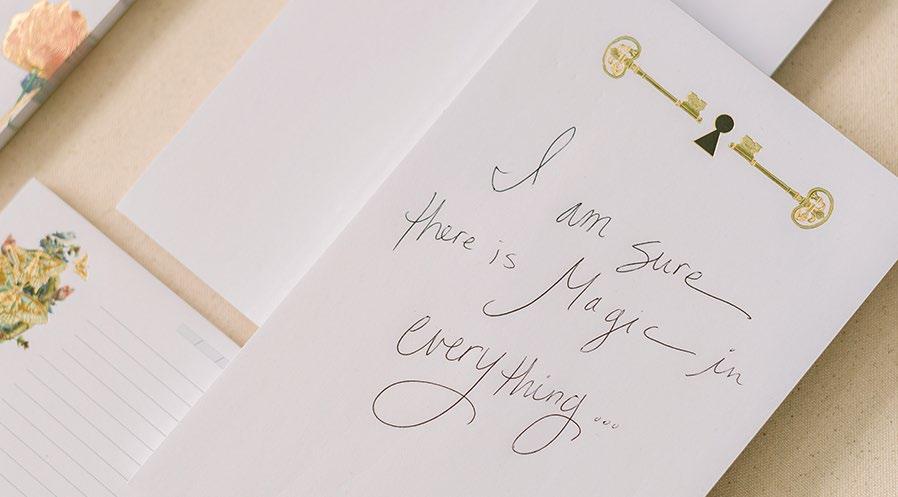 I am sure
there is Magic in
everything...